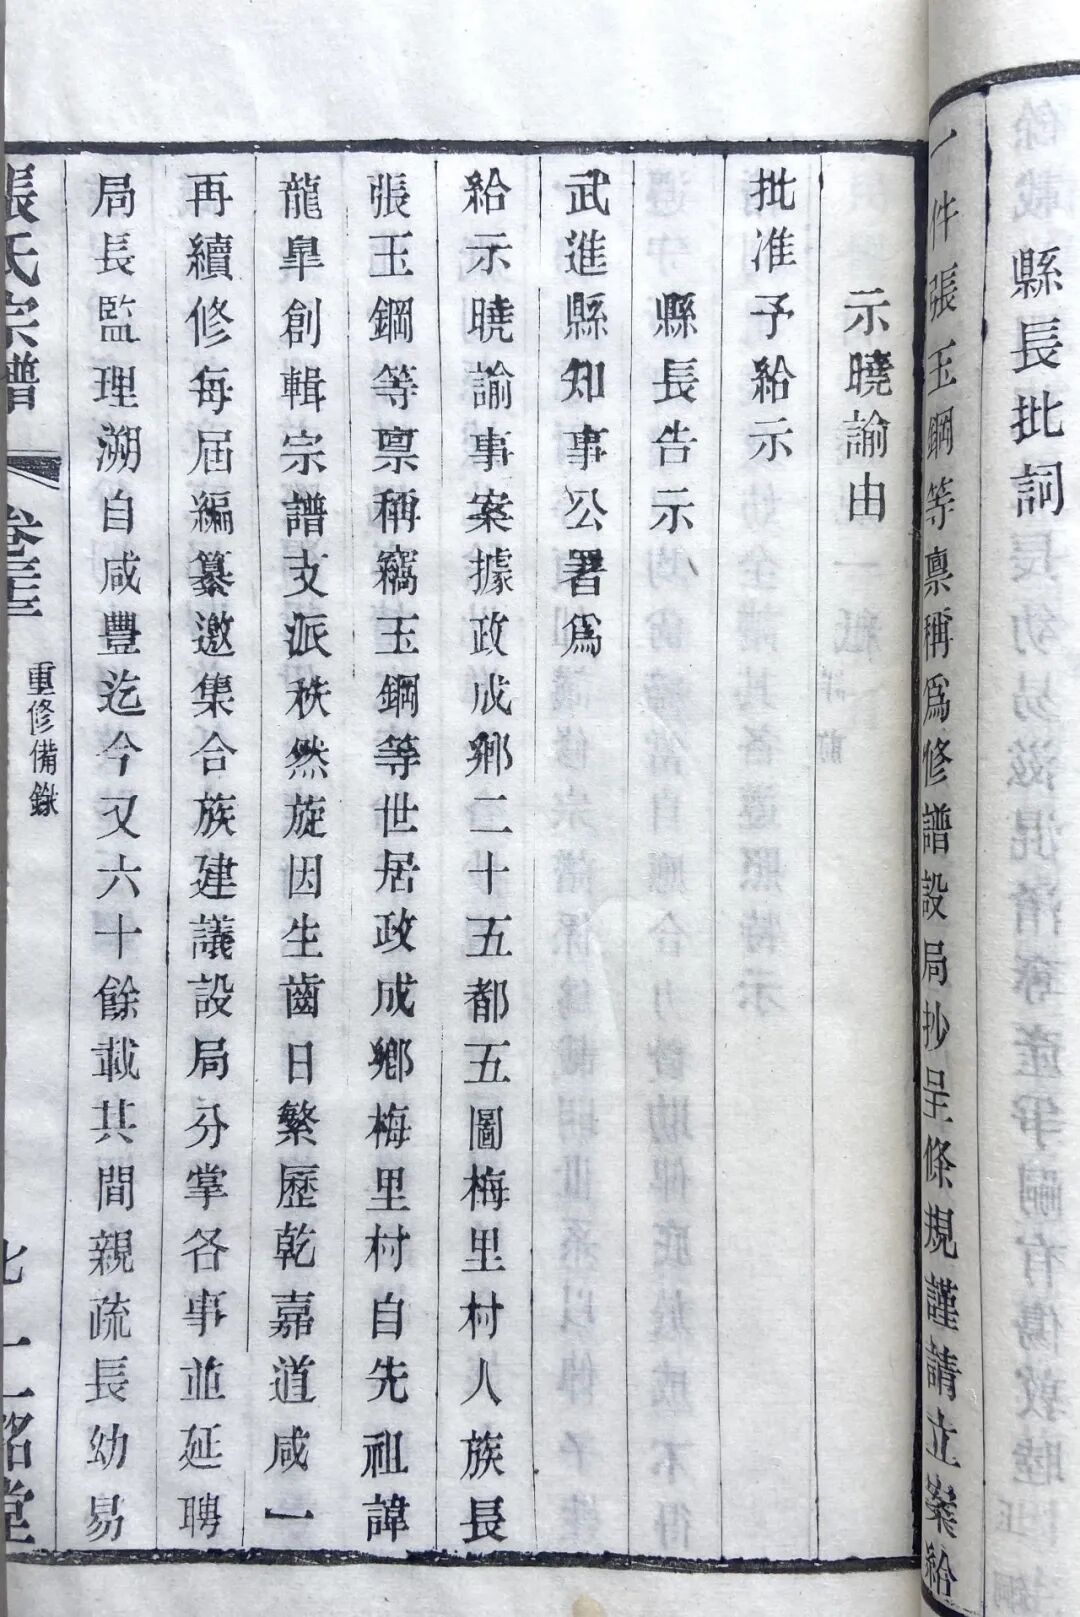 縣長批詞
一件張玉鋼等禀稱爲修譜設局抄呈條規謹請立案給
示曉諭由
批准予給示
縣長告示
武進縣知事公署爲
給示曉諭事案據政成鄉二十五都五圖梅里村人族長
張玉鋼等禀稱竊玉鋼等世居政成鄉梅里村自先祖諱
龍臯創輯宗譜支派秩然旋因生齒日繁歷乾嘉道咸一
再續修每屆編纂邀集合族建議設局分掌各事並延聘
局長監理溯自咸豐迄今又六十餘載共間親疏長幼易
張氏宗譜
重修備錄